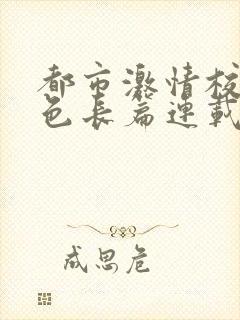 都市激情校
色長篇連載
成思危